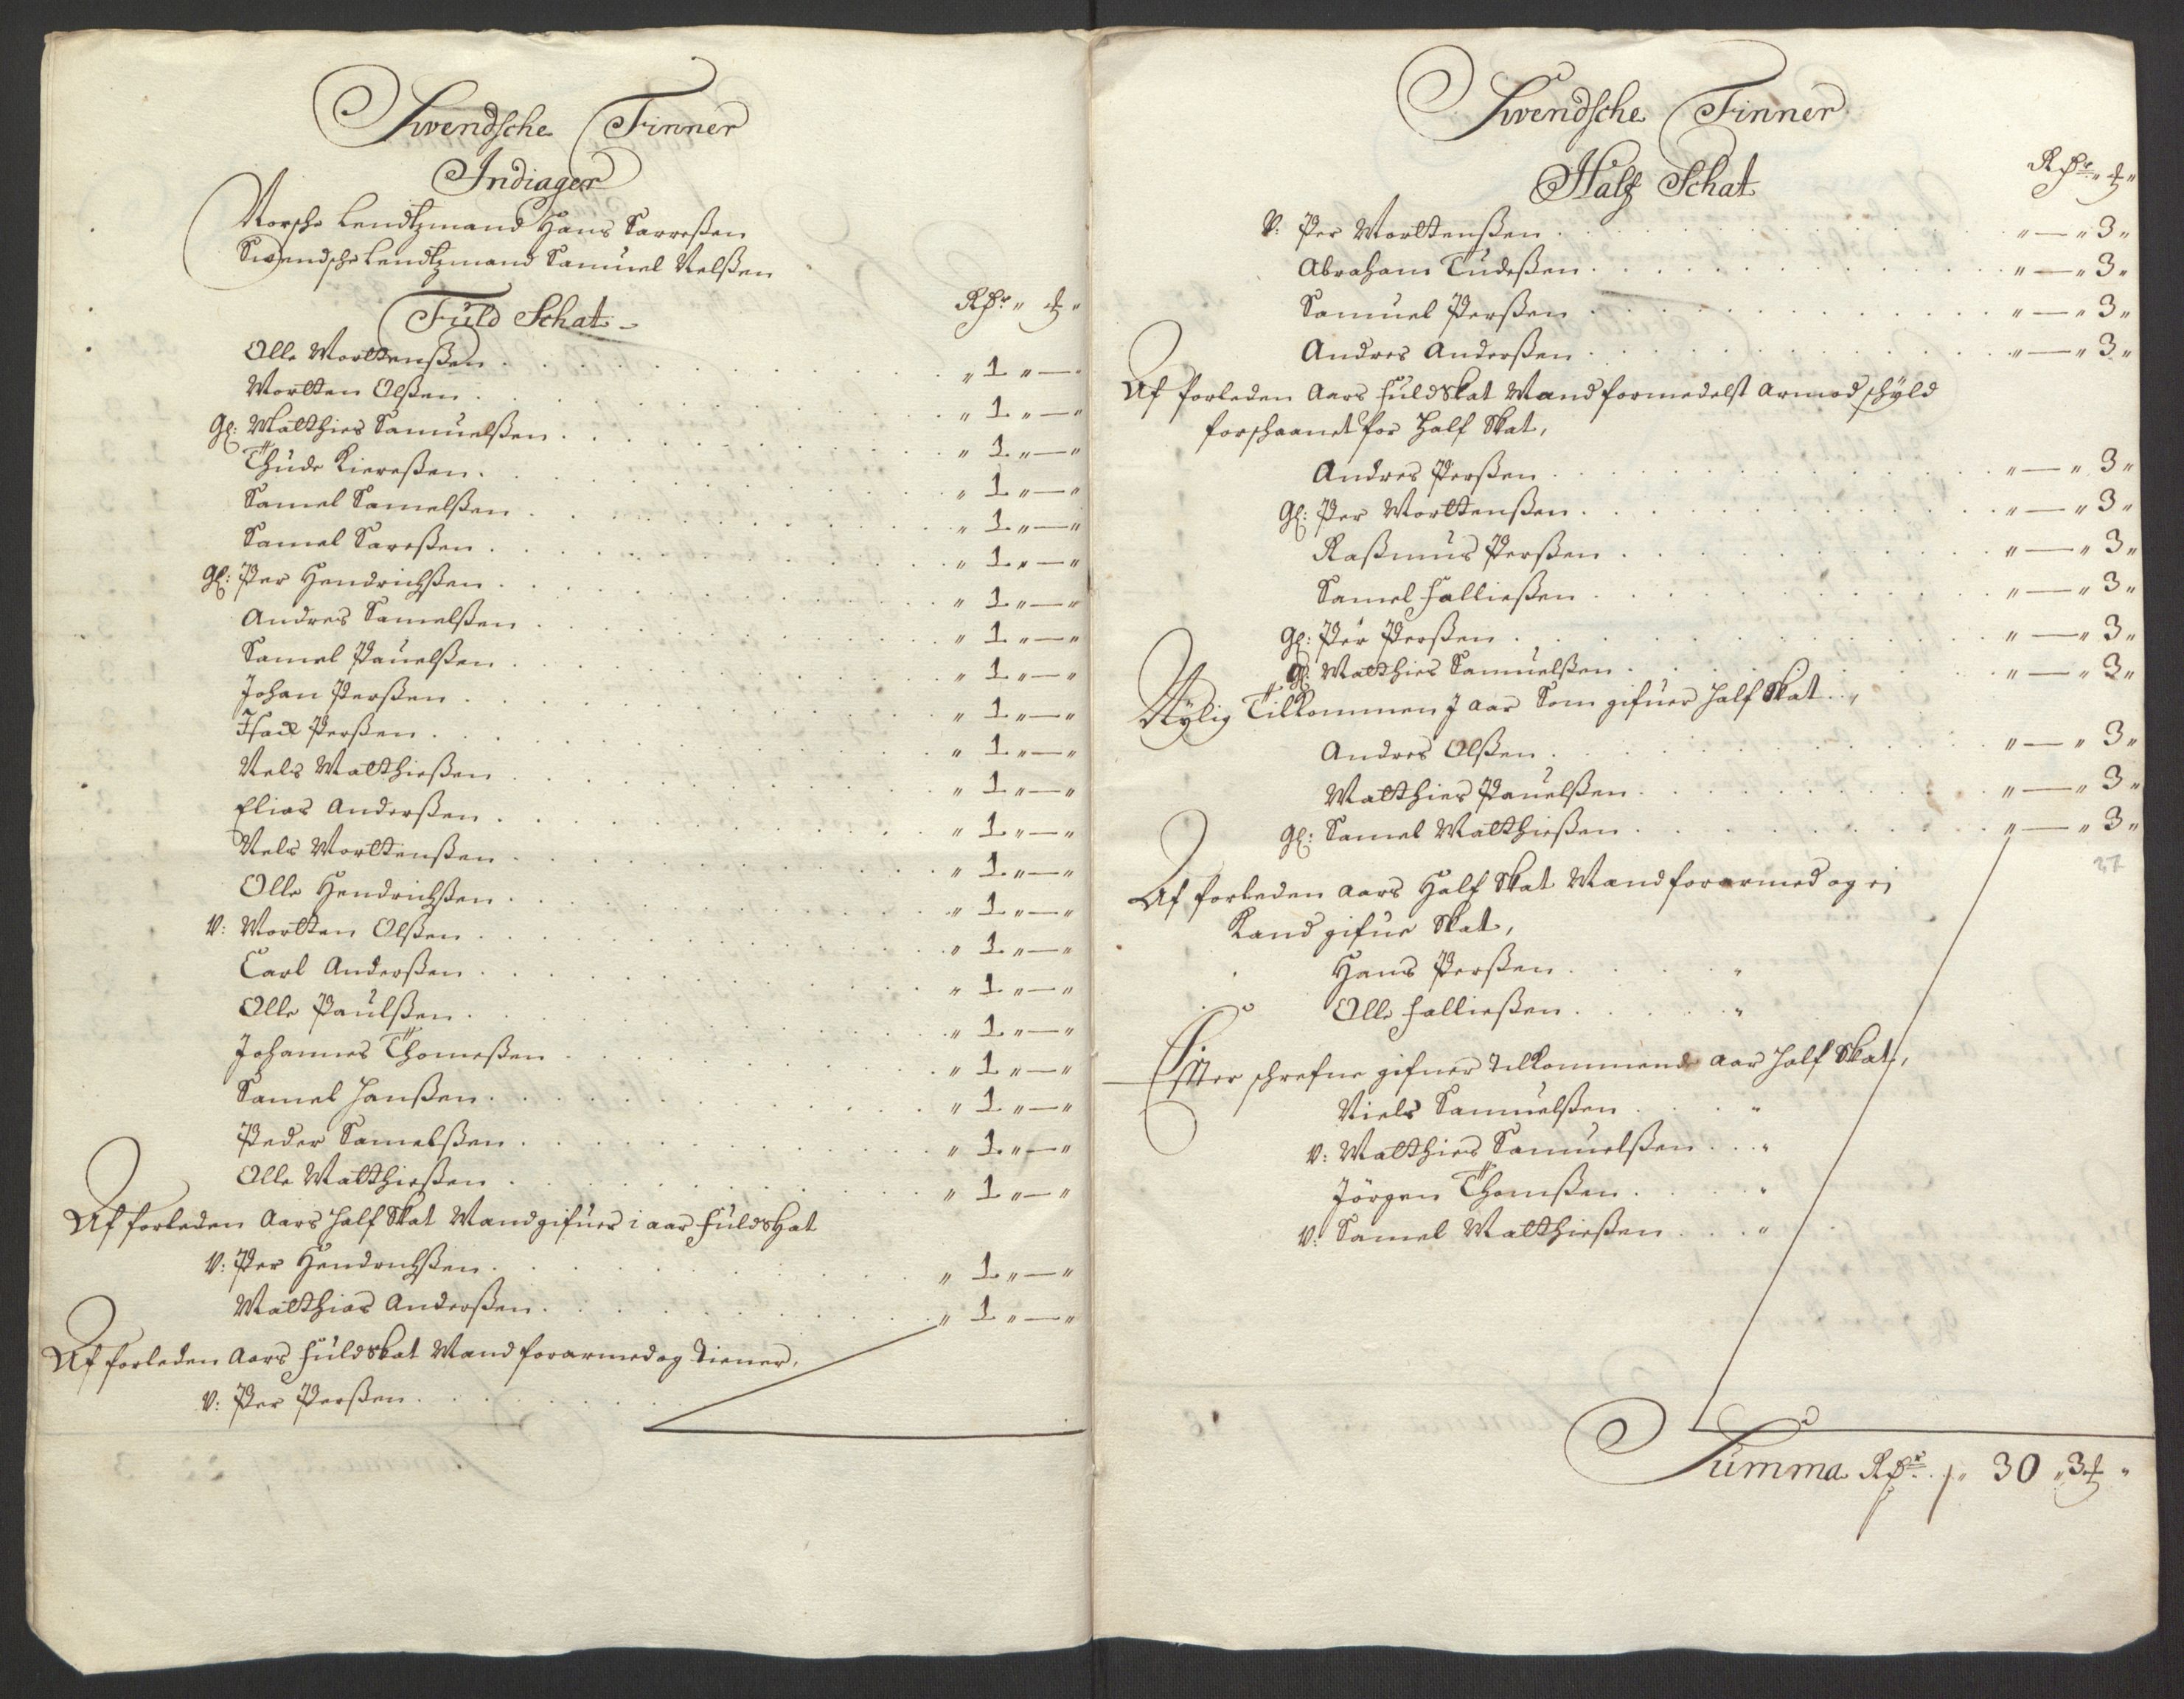 Swendsche Finner
Indiager
Norsche Lendtzmand Hans Sarreßen
Swendsche Lendtzmand Samuel Nelßen
Fuld Schat Rdr ort
Olle Mortenßen " 1 " — "
Morten Olßen " 1 " — "
Gl: Matthies Samuelßen " 1 " — "
Thude Kiereßen " 1 " — "
Samel Samelßen " 1 " — "
Samel Sareßen " 1 " — "
Gl: Per Hendrichßen " 1 " — "
Andres Samelßen " 1 " — "
Samel Pauelßen " 1 " — "
Johan Perßen " 1 " — "
Isach Perßen " 1 " — "
Nels Matthießen " 1 " — "
Elias Anderßen " 1 " — "
Nels Mortenßen " 1 " — "
Olle Hendrichßen " 1 " — "
V: Morten Olßen " 1 " — "
Carl Anderßen " 1 " — "
Olle Paulßen " 1 " — "
Johannes Thomeßen " 1 " — "
Samel Hanßen " 1 " — "
Peder Samelsßen " 1 " — "
Olle Matthießen " 1 " — "
Af forleden Aars half Skat Mand gifuer i aar fuldskat
V: Per Hendrichßen " 1 " — "
Matthias Anderßen " 1 " — "
Af forleden Aars fuldskat Mand forarmed og tiener,
V: Per Perßen
Swendsche Finner
Half Schat Rdr " ort "
V: Per Mortenßen " — " 3 "
Abraham Tudeßen " — " 3 "
Samuel Perßen " — " 3 "
Andres Anderßen " — " 3 "
Af forleden Aars fuldskat Mand formedelst armod schyld
forschaanet for half Skat,
Andres Perßen " — " 3 "
Gl: Per Mortenßen " — " 3 "
Raßmus Perßen " — " 3 "
Samel falließen " — " 3 "
Gl: Per Perßen " — " 3 "
Gl: Matthies Samuelßen " — " 3 "
Nylig Tilkommen J aar Som gifuer half Skat
Andres Olßen " — " 3 "
Matthies Pauelßen " — " 3 "
Gl: Samel Matthießen " — " 3 "
27
Af forleden aars Half Skat Mand forarmed og ej
Kand gifue Skat,
Hans Perßen "
Olle falließen "
Effter schrefne gifuer tilkommende aar half Skat,
Niels Samuelßen "
V: Matthies Samuelßen "
Jörgen Thomßen "
V: Samel Matthießen "
Summa Rdr 30 " 3 ort "